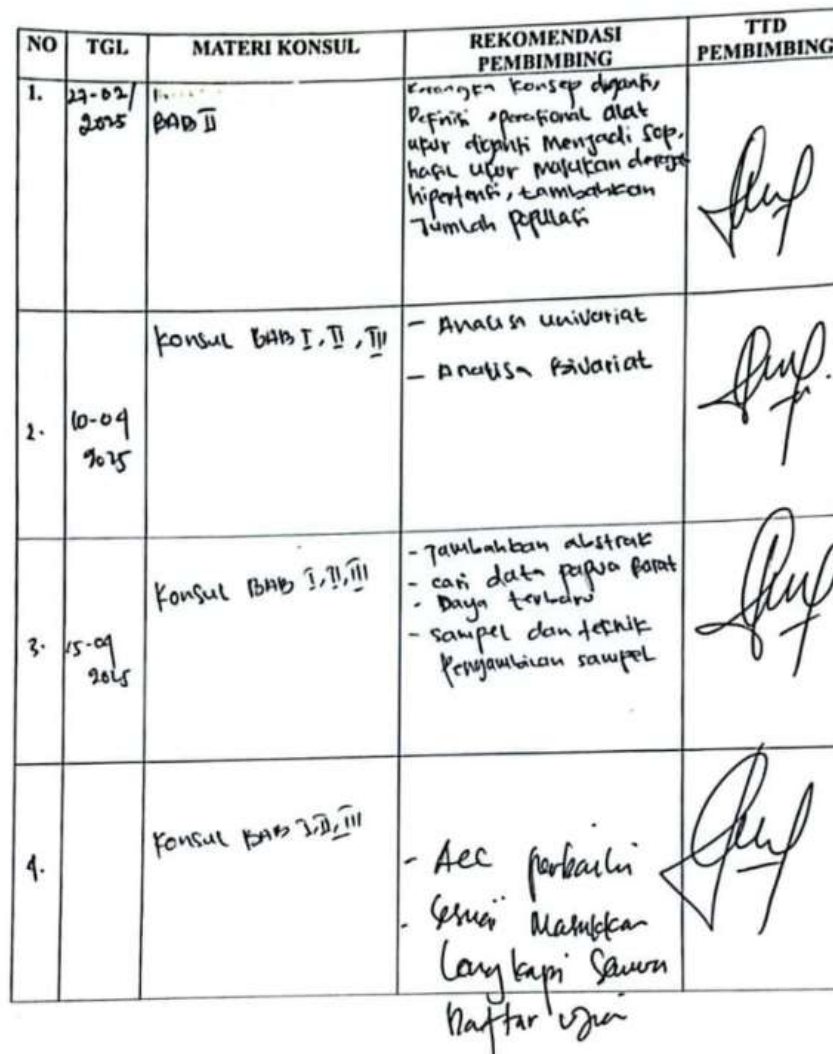 NO TGL MATERI KONSUL REKOMENDASI PEMBIMBING TTD PEMBIMBING
1.
27-02/
2025
BAB II
Konsep diganti,
Definisi operasional alat
ukur diganti Menjadi sop,
hasil ukur masukan
hipertensi, tambahkan
Jumlah populasi
2.
10-04
2025
Konsul BAB I, II, III
- Analisa univariat
- Analisa Bivariat
3.
15-04
2025
Konsul BAB I, II, III
- Tambahkan abstrak
- cari data papua Barat
- terbaru
- sampel dan teknik
Pengambilan sampel
4.
Konsul BAB I, II, III
- Acc perbaiki
- Sesuai Masukkan
Lengkapi
Daftar ujian